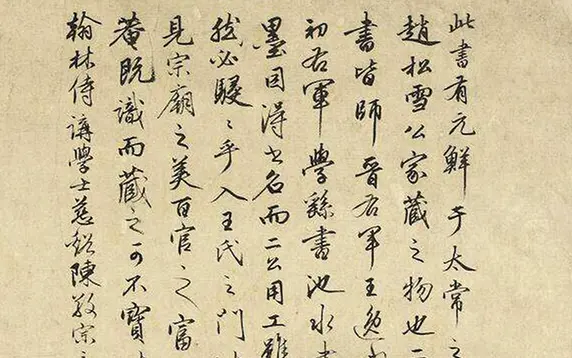 此書有元鮮于太常之
趙松雪公家藏之物也二
書皆師晉右軍王逸
初右軍學繇書池水
墨因得書名而二公用工雖
然必駸〻乎入王氏之門
見宗廟之美百官之富
菴既識而藏之可不寶
翰林侍講學士慈谿陳敬宗